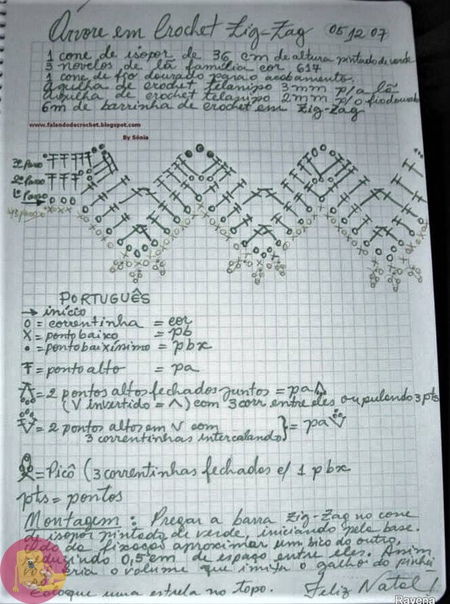 Árvore em Crochet Zig-Zag 05.12.07
1 cone de isopor de 36 cm de altura pintado de verde
3 novelos de lã família cor 614
1 cone de fio dourado para o acabamento
Agulha de crochet, 3mm p/a lã
agulha de crochet 2mm p/o fio dourado
6m de barrinha de crochet em zig-zag
www.falandodecrochet.blogspot.com
By Sônia
3ª carr
2ª carr
1ª carr
PORTUGUÊS
→ = início
o = correntinha = cor
X = ponto baixo = pb
• = ponto baixíssimo = pbx
= ponto alto = pa
= 2 pontos altos fechados juntos = pa
(V invertido = Λ) com 3 corr entre eles ou pulando 3 pts
= 2 pontos altos em V com
3 correntinhas intercalando = pa V
= Picô (3 correntinhas fechadas c/ 1 pbx
pts = pontos
Montagem: Pregar a barra zig-zag no cone
de isopor pintado de verde, iniciando pela base.
da fixação aproximar um bico do outro,
0,5 cm de espaço entre eles. Assim
o volume que imita o galho do pinhei
Coloque uma estrela no topo. Feliz Natal!
Ravena